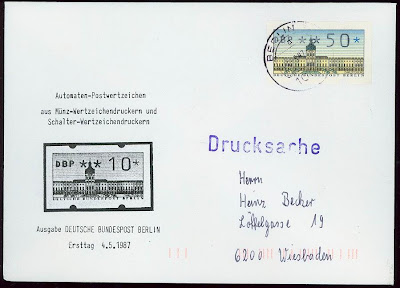 BERLIN
DBP *** 50*
DEUTSCHE BUNDESPOST BERLIN
Automaten-Postwertzeichen
aus Münz-Wertzeichendruckern und
Schalter-Wertzeichendruckern
DBP *** 10*
DEUTSCHE BUNDESPOST BERLIN
Ausgabe DEUTSCHE BUNDESPOST BERLIN
Ersttag 4.5.1987
Drucksache
Herrn
Heinz Becker
Löffelgasse 19
6200 Wiesbaden